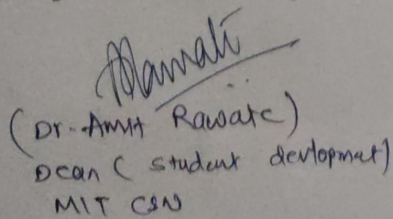 (Dr. Amit Rawate)
Dean ( student devlopmet)
MIT CSN